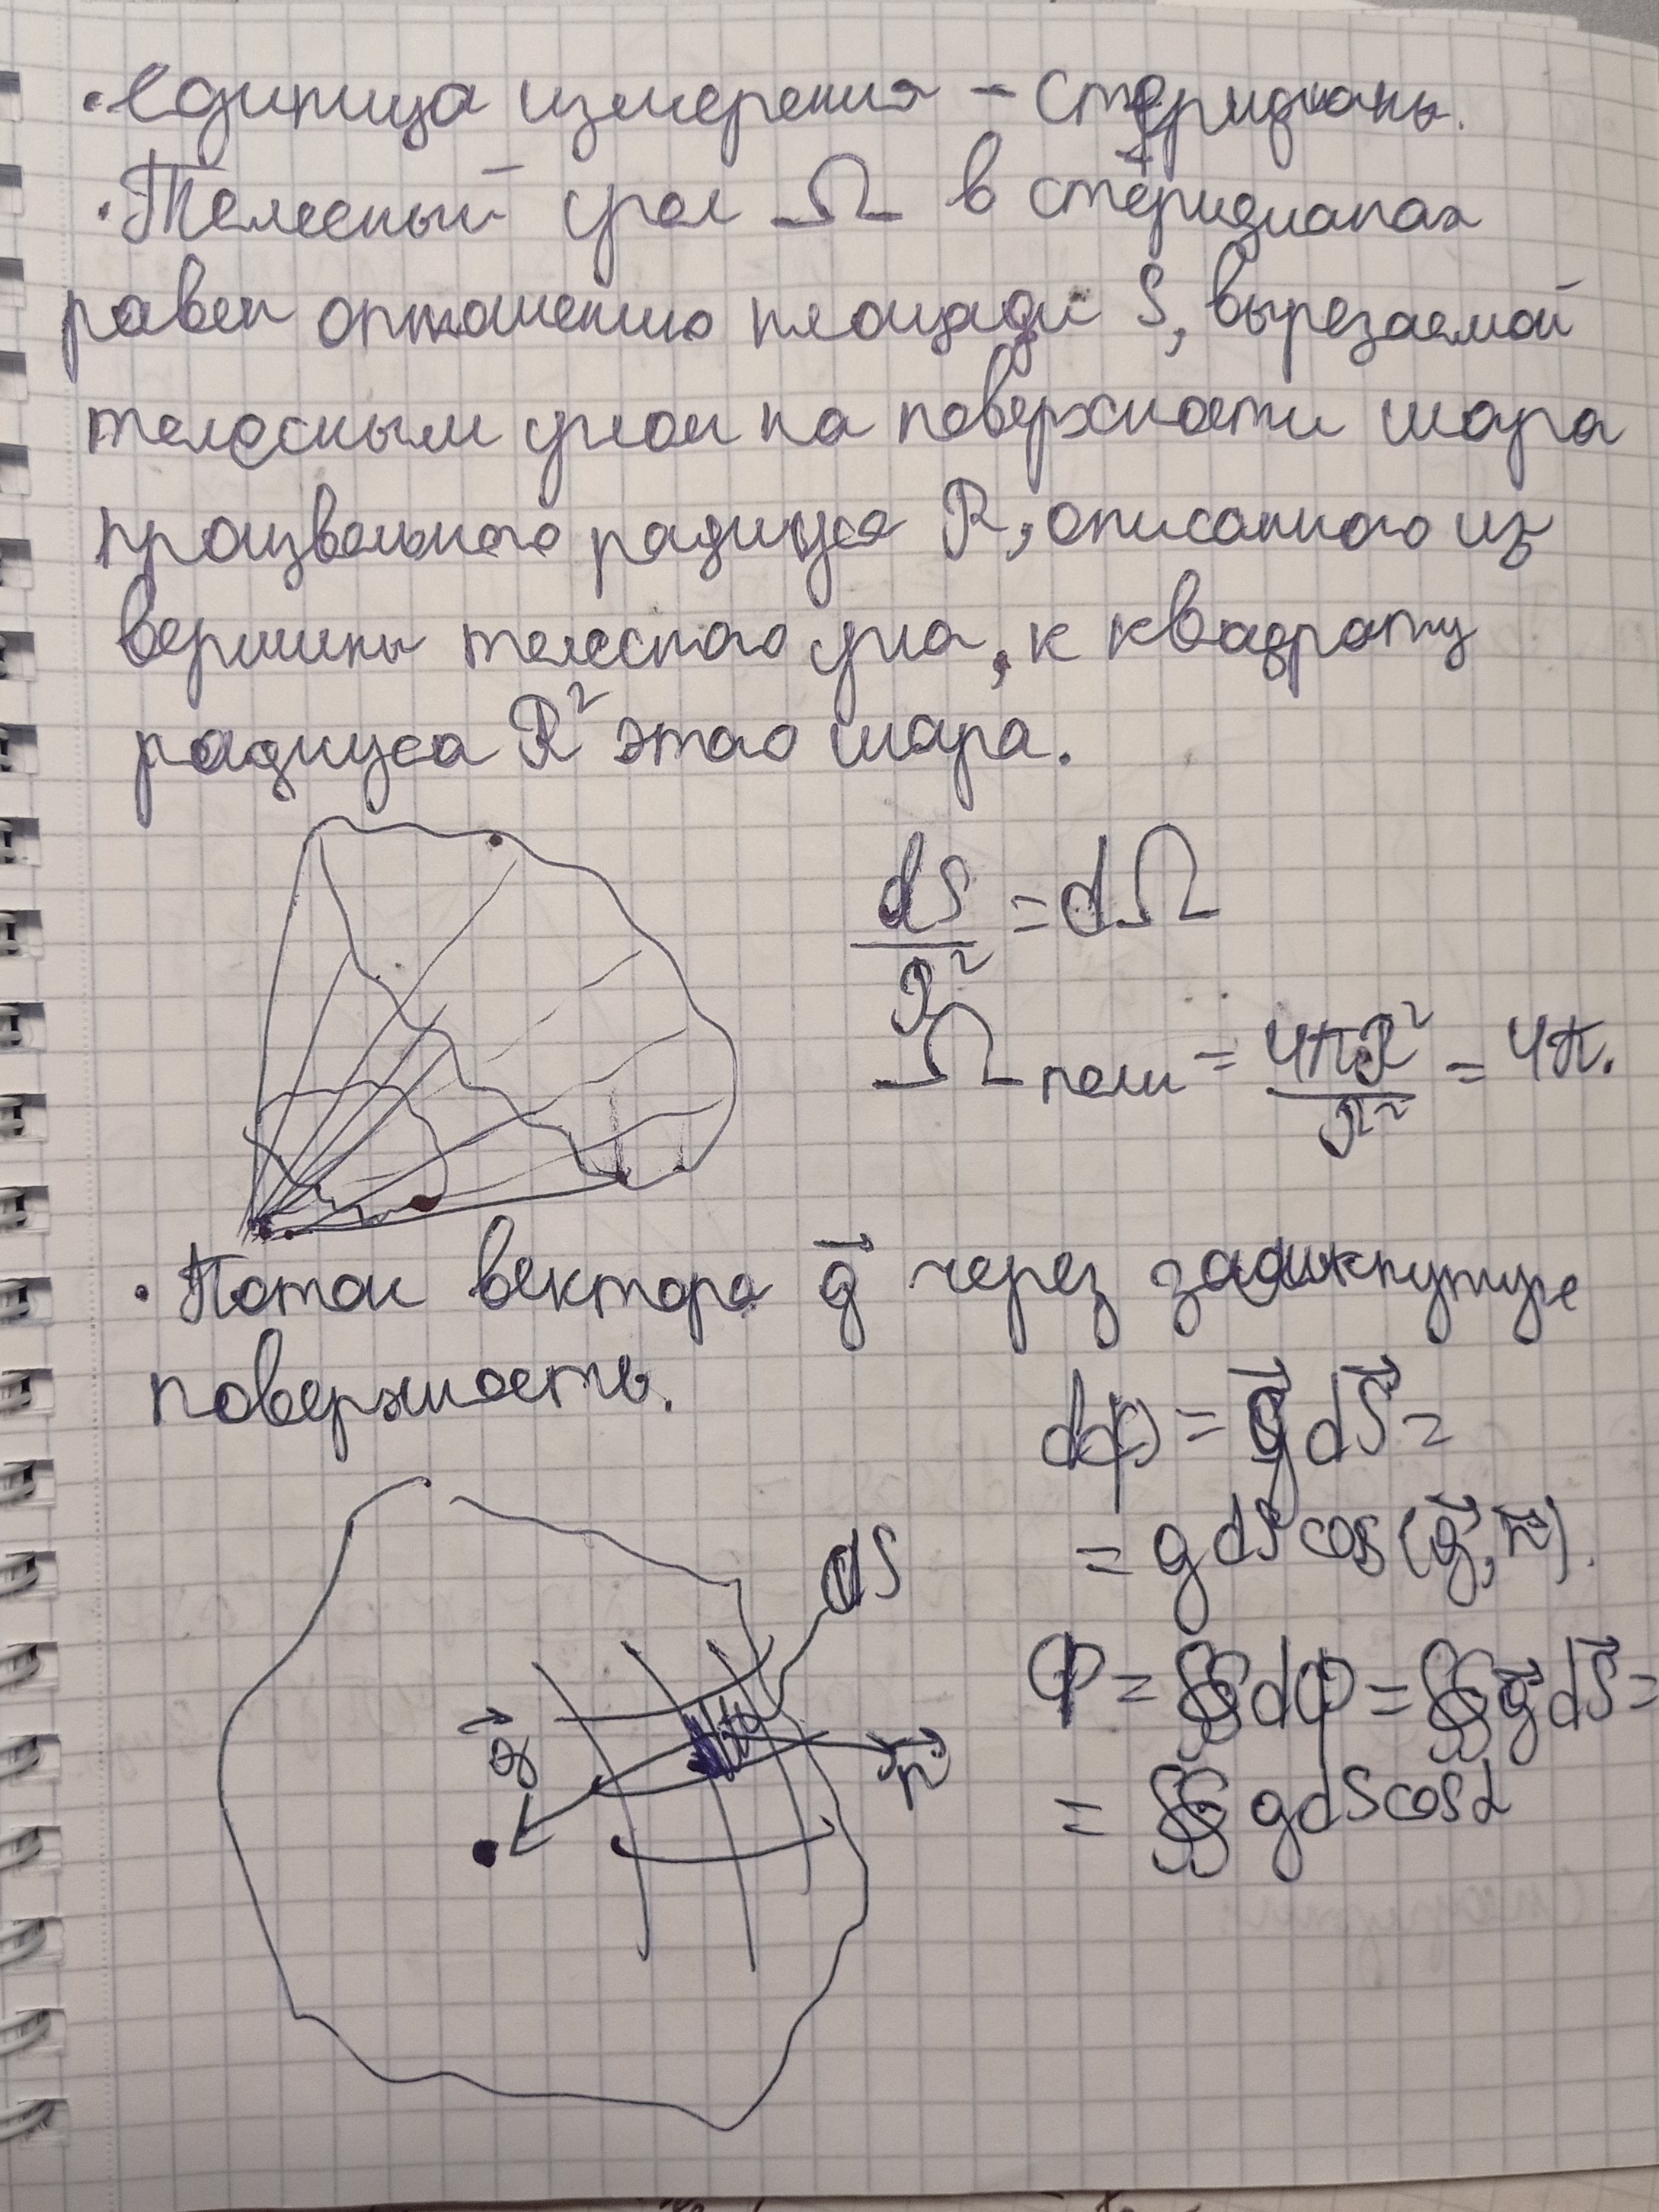 · единица измерения – стеридианы.
· Телесный угол Ω в стеридианах
равен отношению площади S, вырезаемой
телесным углом на поверхности шара
произвольного радиуса R, описанного из
вершины телесного угла, к квадрату
радиуса R² этого шара.
dS/R² = dΩ
Ωполн = 4πR²/R² = 4π.
· Поток вектора g⃗ через замкнутую
поверхность.
dФ = g⃗dS⃗ =
= gdS cos(g⃗, n⃗).
dS
Ф = ∯dФ = ∯g⃗dS⃗ =
g⃗
n⃗
= ∯ gdS cosα